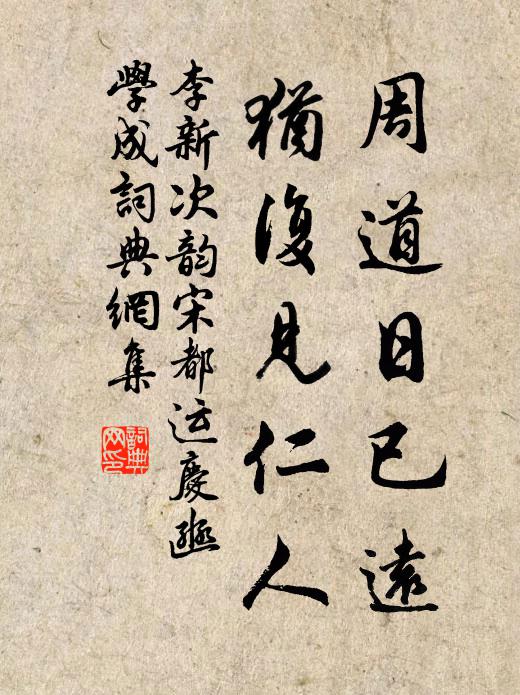 周道日已遠
猶復見仁人
李新次韵宋都运慶幽
學成詞典網集
詞典
网印